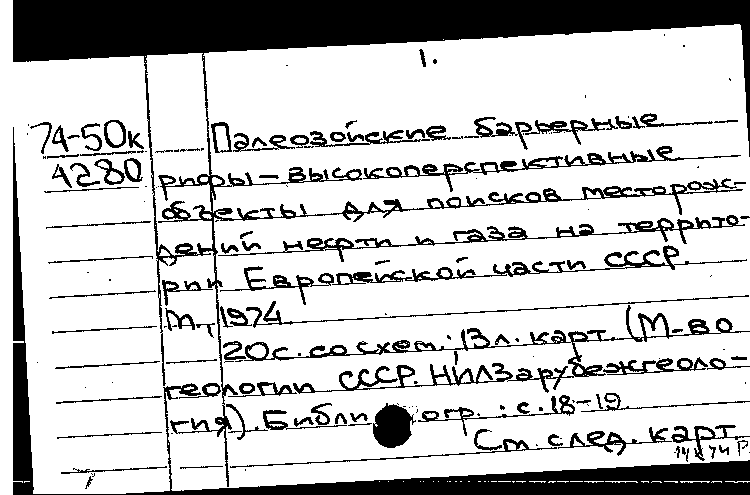 1.
74-50к Палеозойские барьерные
4280 рифы-высокоперспективные
объекты для поисков месторож-
дений нефти и газа на террито-
рии Европейской части СССР.
М., 1974.
20с. со схем.; 13л. карт. (М-во
геологии СССР. НИЛЗарубежгеоло-
гия). Библиогр.: с.18-19.
См. след. карт.